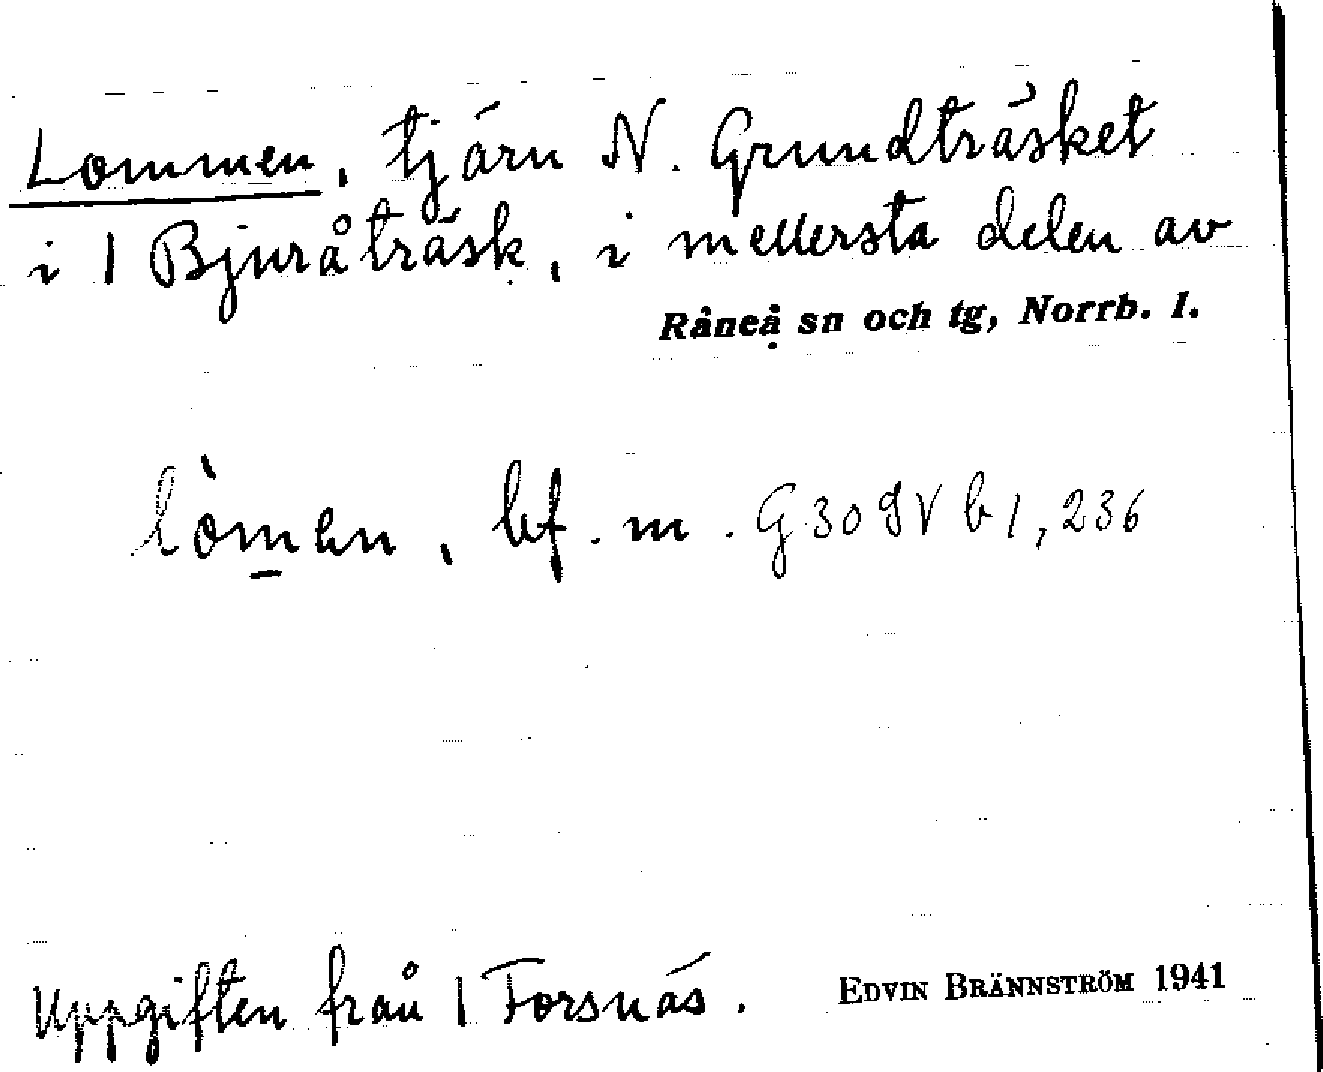 Lommen, tjärn N. Grundträsket
i 1 Bjuråträsk, i mellersta delen av
Råneå sn och tg, Norrb. l.
lòmen, bf. m. G 309 V b 1, 236
Uppgiften från 1 Forsnäs.
EDVIN BRÄNNSTRÖM 1941